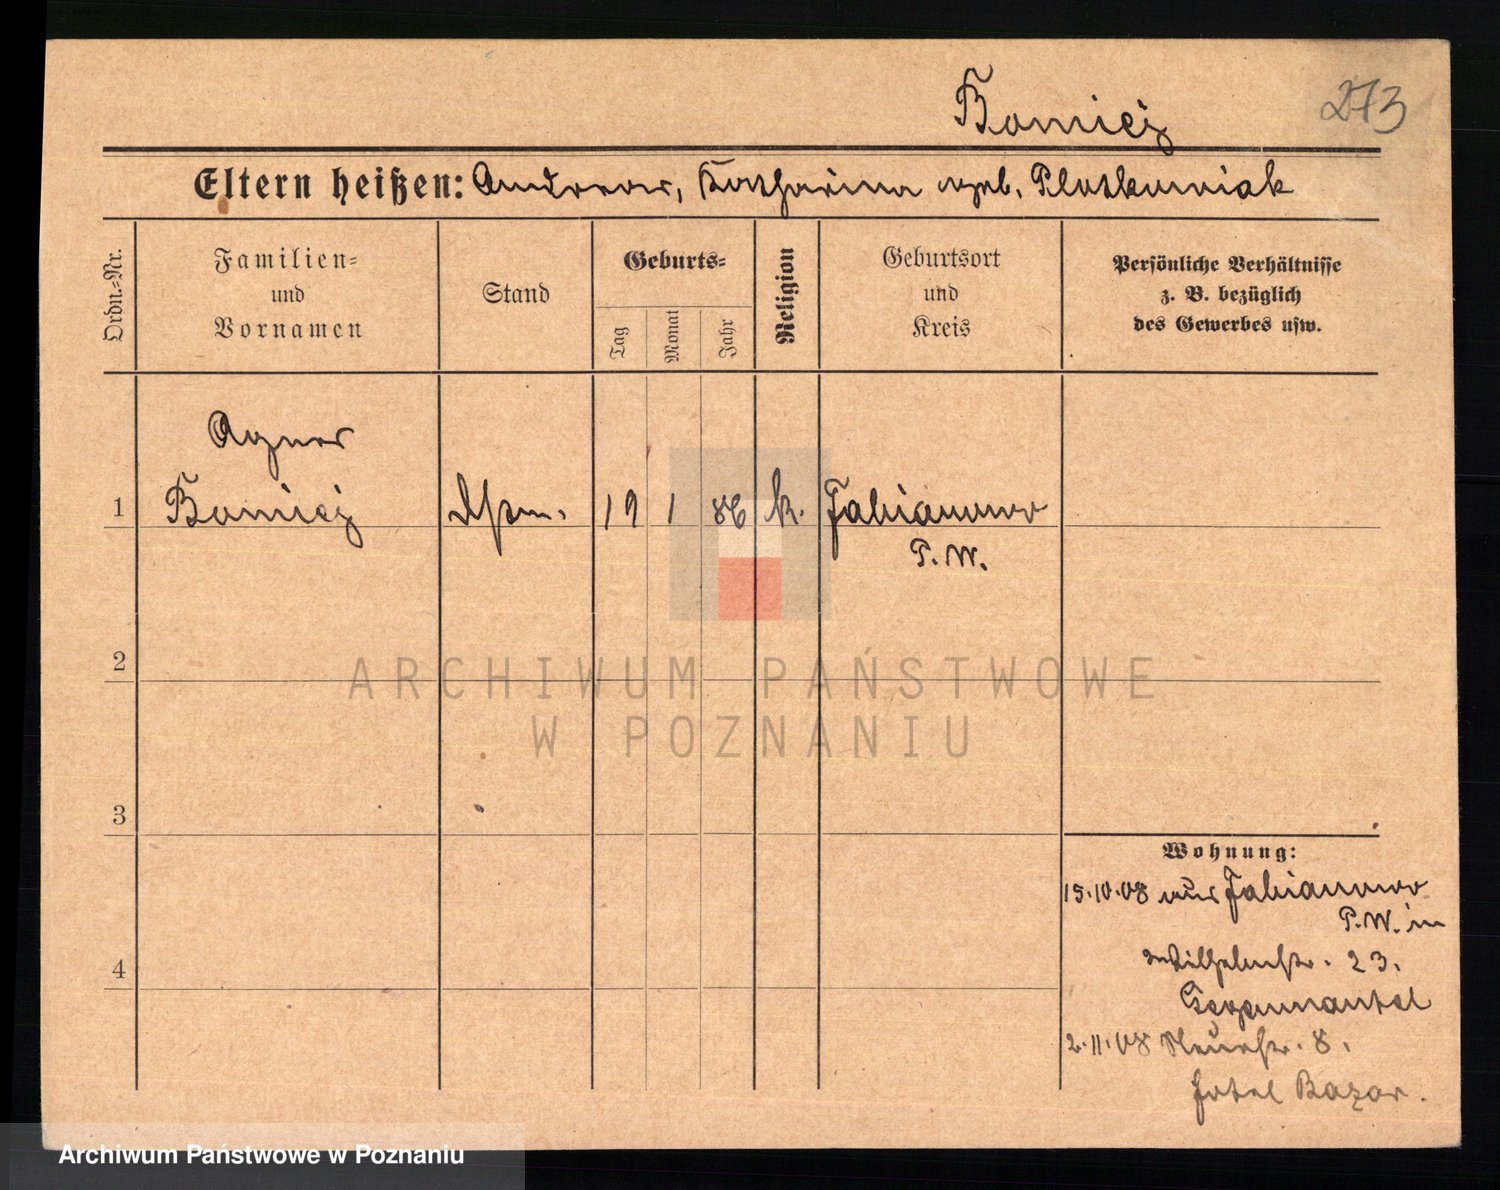 Bomiej
273
Eltern heißen: Andreas, Katharina geb. Plotkowiak
Ordn.-Nr.
Familien-
und
Vornamen
Stand
Geburts-
Tag
Monat
Jahr
Religion
Geburtsort
und
Kreis
Persönliche Verhältnisse
z. B. bezüglich
des Gewerbes usw.
Agnes
1 Bomiej 19 1 86 k. Fabianowo
P. W.
2
ARCHIWUM PAŃSTWOWE
W POZNANIU
3
Wohnung:
15.10.08 aus Fabianowo
P. W. in
4
Wilhelmstr. 23.
2.11.08 Neuestr. 8.
Hotel Bazar.
Archiwum Państwowe w Poznaniu